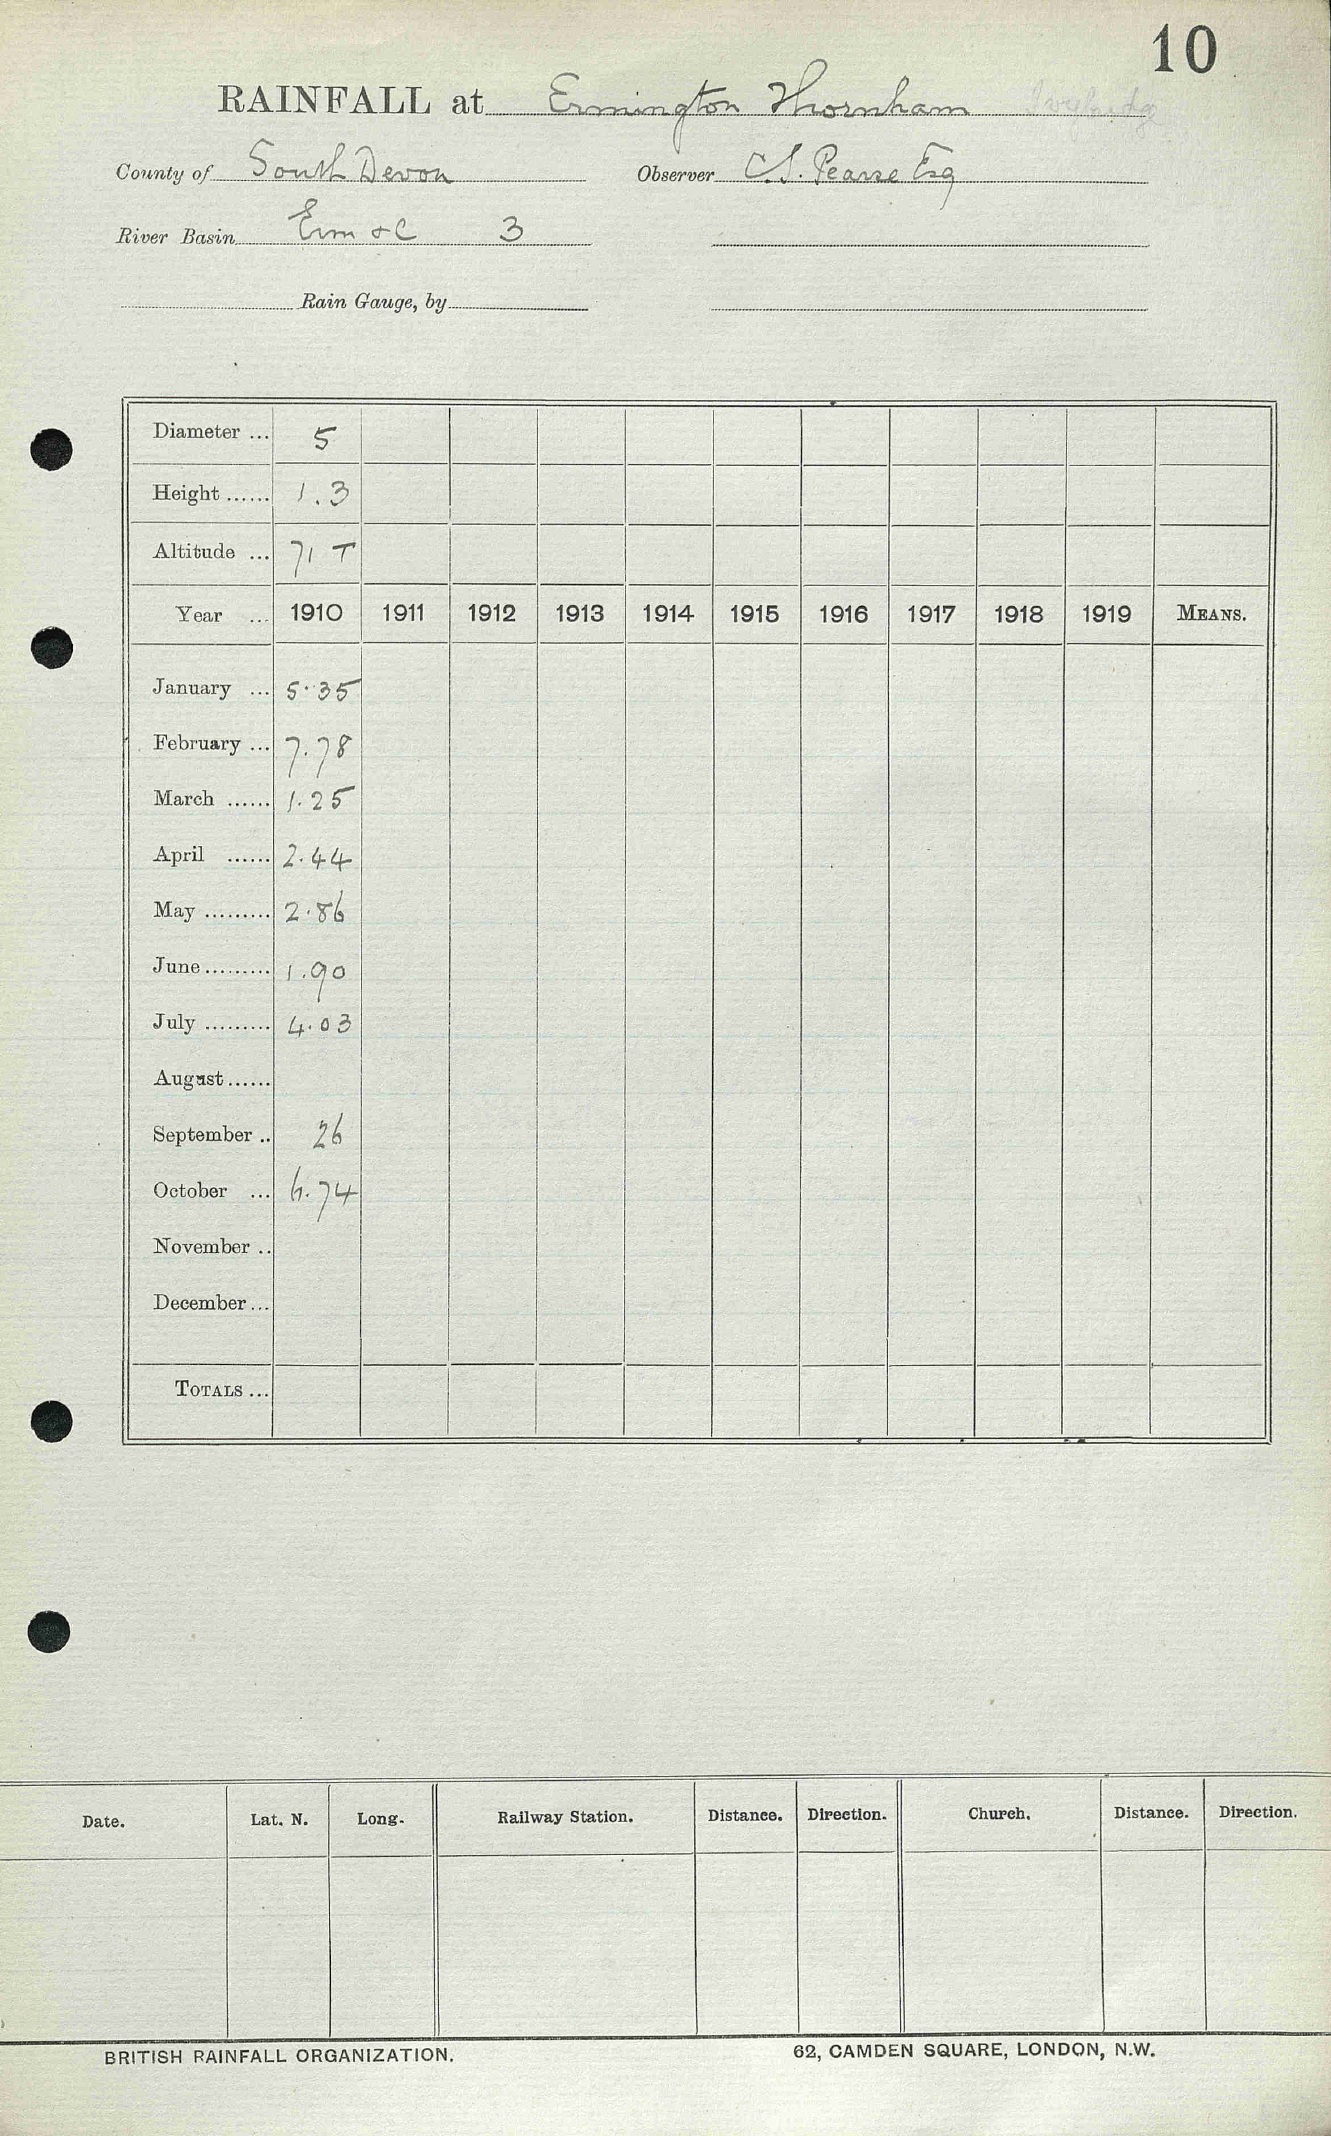 10
RAINFALL at Ermington Thornham Ivybridge
County of South Devon Observer C.S. Pearse Esq
River Basin Erm &c 3
Rain Gauge, by
Diameter ... 5
Height ...... 1.3
Altitude ... 71 T
Year ... 1910 1911 1912 1913 1914 1915 1916 1917 1918 1919 MEANS.
January ... 5.35
February ... 7.78
March ...... 1.25
April ...... 2.44
May ......... 2.86
June ......... 1.90
July ......... 4.03
August ......
September .. 26
October ... 6.74
November ..
December ...
TOTALS ...
Date. Lat. N. Long. Railway Station. Distance. Direction. Church. Distance. Direction.
BRITISH RAINFALL ORGANIZATION. 62, CAMDEN SQUARE, LONDON, N.W.